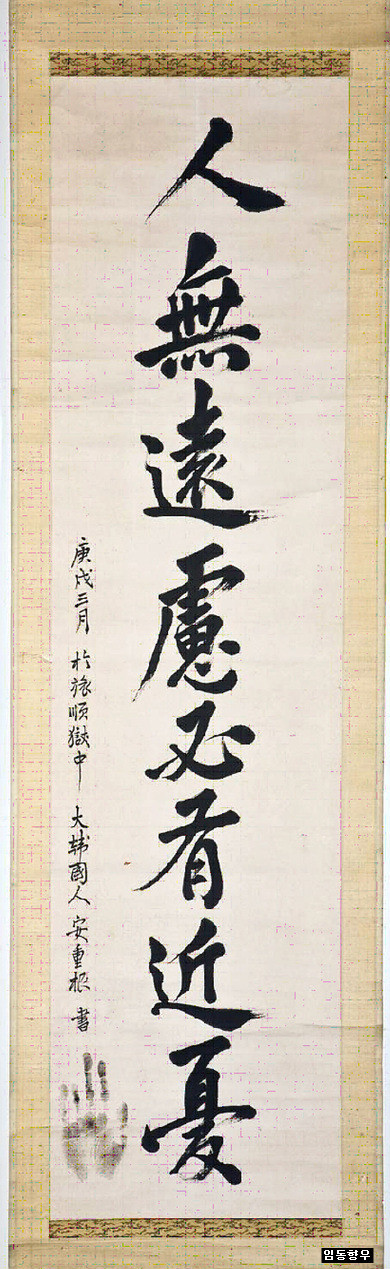 人無遠慮必有近憂
庚戌三月 於旅順獄中 大韓國人 安重根 書
임동향우